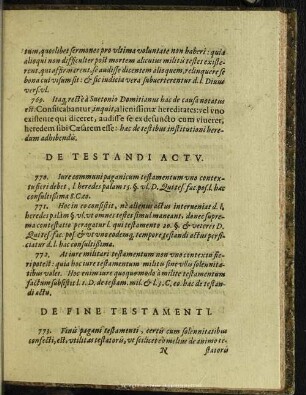 tum, quoslibet sermones pro vltima voluntate non haberi: quia
alioqui non difficulter post mortem alicuius militis testes existe-
rent, qui affirmarent, se audisse dicentem aliquem, relinquere se
bona cui visum sit: & sic iudicia vera subuerterentur d. l. Diuus
vers. vl.
769. Itaq; rectè à Suetonio Domitianus hac de causa notatus
est: Confiscabantur, inquit, alienissimæ hereditates: vel vno
existente qui diceret, audisse se ex defuncto cum viueret,
heredem sibi Cæsarem esse: hac de testibus institutioni here-
dum adhibendis.
DE TESTANDI ACTV.
770. Iure communi paganicum testamentum vno contex-
tu fieri debet, l. heredes palam 15. §. vl. D. Qui test. fac. pos. l. hac
consultissima 8. C. eo.
771. Hoc in eo consistit, ne alienus actus interueniat d. l.
heredes palàm §. vl. vt omnes testes simul maneant, donec supre-
mo contestatio peragatur l. qui testamento 20. §. & veteres D.
Qui test. fac. pos. & vt vno eodemq; tempore, testandi actus perfi-
ciatur d. l. hac consultissima.
772. At iure militari testamentum non vno contextu fie-
ri potest: quia hac iure testamentum militis sine vlla solennita-
te bus valet. Hoc enim iure quoquomodo à milite testamentum
factum subsistit l. 1. D. de testam. mil. & l. 3. C. eo. hac de testan-
di actu,
DE FINE TESTAMENTI.
773. Finis pagani testamenti, certis cum solennitatibus
confecti, est, vtilitas testatoris, vt scilicet is melius de animo te-
N statoris